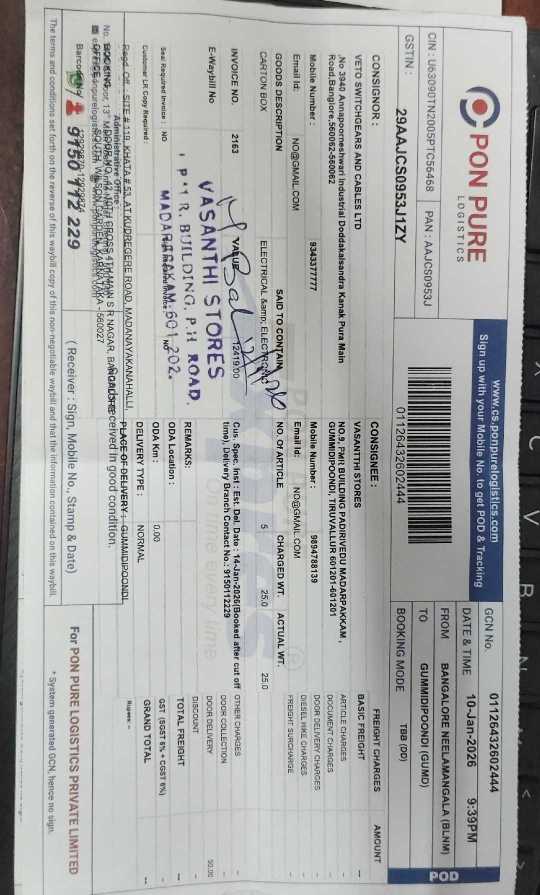 PON PURE
LOGISTICS
www.cs.ponpurelogistics.com
Sign up with your Mobile No. to get POD & Tracking
GCN No. 01126432602444
DATE & TIME 10-Jan-2026 9:39PM
CIN : U63090TN2005PTC56468 PAN : AAJCS0953J
GSTIN : 29AAJCS0953J1ZY
01126432602444
FROM BANGALORE NEELAMANGALA (BLNM)
TO GUMMIDIPOONDI (GUMD)
BOOKING MODE TBB (DD)
POD
CONSIGNOR :
VETO SWITCHGEARS AND CABLES LTD
,No 3940 Annapoorneshwari Industrial Doddakalsandra Kanak Pura Main
Road,Banglore,560062-560062
Mobile Number : 9343377777
Email Id: NO@GMAIL.COM
CONSIGNEE :
VASANTHI STORES
NO.9, PMR BUILDING PADIRIVEDU MADARPAKKAM ,
GUMMIDIPOONDI, TIRUVALLUR 601201-601201
Mobile Number : 9894788139
Email Id: NO@GMAIL.COM
FREIGHT CHARGES AMOUNT
BASIC FREIGHT --
ARTICLE CHARGES
DOCUMENT CHARGES
DOOR DELIVERY CHARGES
DIESEL HIKE CHARGES
FREIGHT SURCHARGE
OTHER CHARGES
DOOR COLLECTION
DOOR DELIVERY 50.00
DISCOUNT
TOTAL FREIGHT --
GST (SGST 6% + CGST 6%)
GRAND TOTAL --
Rupees --
GOODS DESCRIPTION SAID TO CONTAIN NO. OF ARTICLE CHARGED WT. ACTUAL WT.
CARTON BOX ELECTRICAL &amp; ELECTRONIC 5 25.0 25.0
INVOICE NO. 2163 VALUE 12419.00
Cus. Spec. Inst : Est. Del. Date : 14-Jan-2026(Booked after cut off
time), Delivery Branch Contact No.: 9150112229
E-Waybill No
REMARKS:
VASANTHI STORES
P M R. BUILDING, P.H ROAD,
MADARPAKAM-601 202.
Seal Required Invoice : NO
Customer LR Copy Required :
ODA Location :
ODA Km : 0.00
DELIVERY TYPE : NORMAL
PLACE OF DELIVERY : GUMMIDIPOONDI
Goods received in good condition.
Administrative Office
Regd. Off. : SITE # 119, KHATA # 53, AT KUDREGERE ROAD, MADANAYAKANAHALLI,
9150 112 229
( Receiver : Sign, Mobile No., Stamp & Date)
For PON PURE LOGISTICS PRIVATE LIMITED
* System generated GCN, hence no sign.
The terms and conditions set forth on the reverse of this waybill copy of this non-negotiable waybill and that the information contained on this waybill